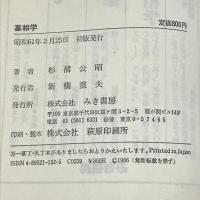 墓相学
定価800円
昭和61年3月25日 初版発行
著者 杉浦公昭
発行者 新橋重夫
発行所 株式会社 みき書房
〒100 東京都千代田区霞ヶ関3-2-5 霞が関ビル14F
電話 03 (581) 6331 振替 東京 0-57465
印刷・製本 株式会社 萩原印刷所
万一落丁・乱丁本がありましたらおとりかえいたします。Printed in Japan
ISBN 4-89521-192-5 C0039 ¥800E ©1986